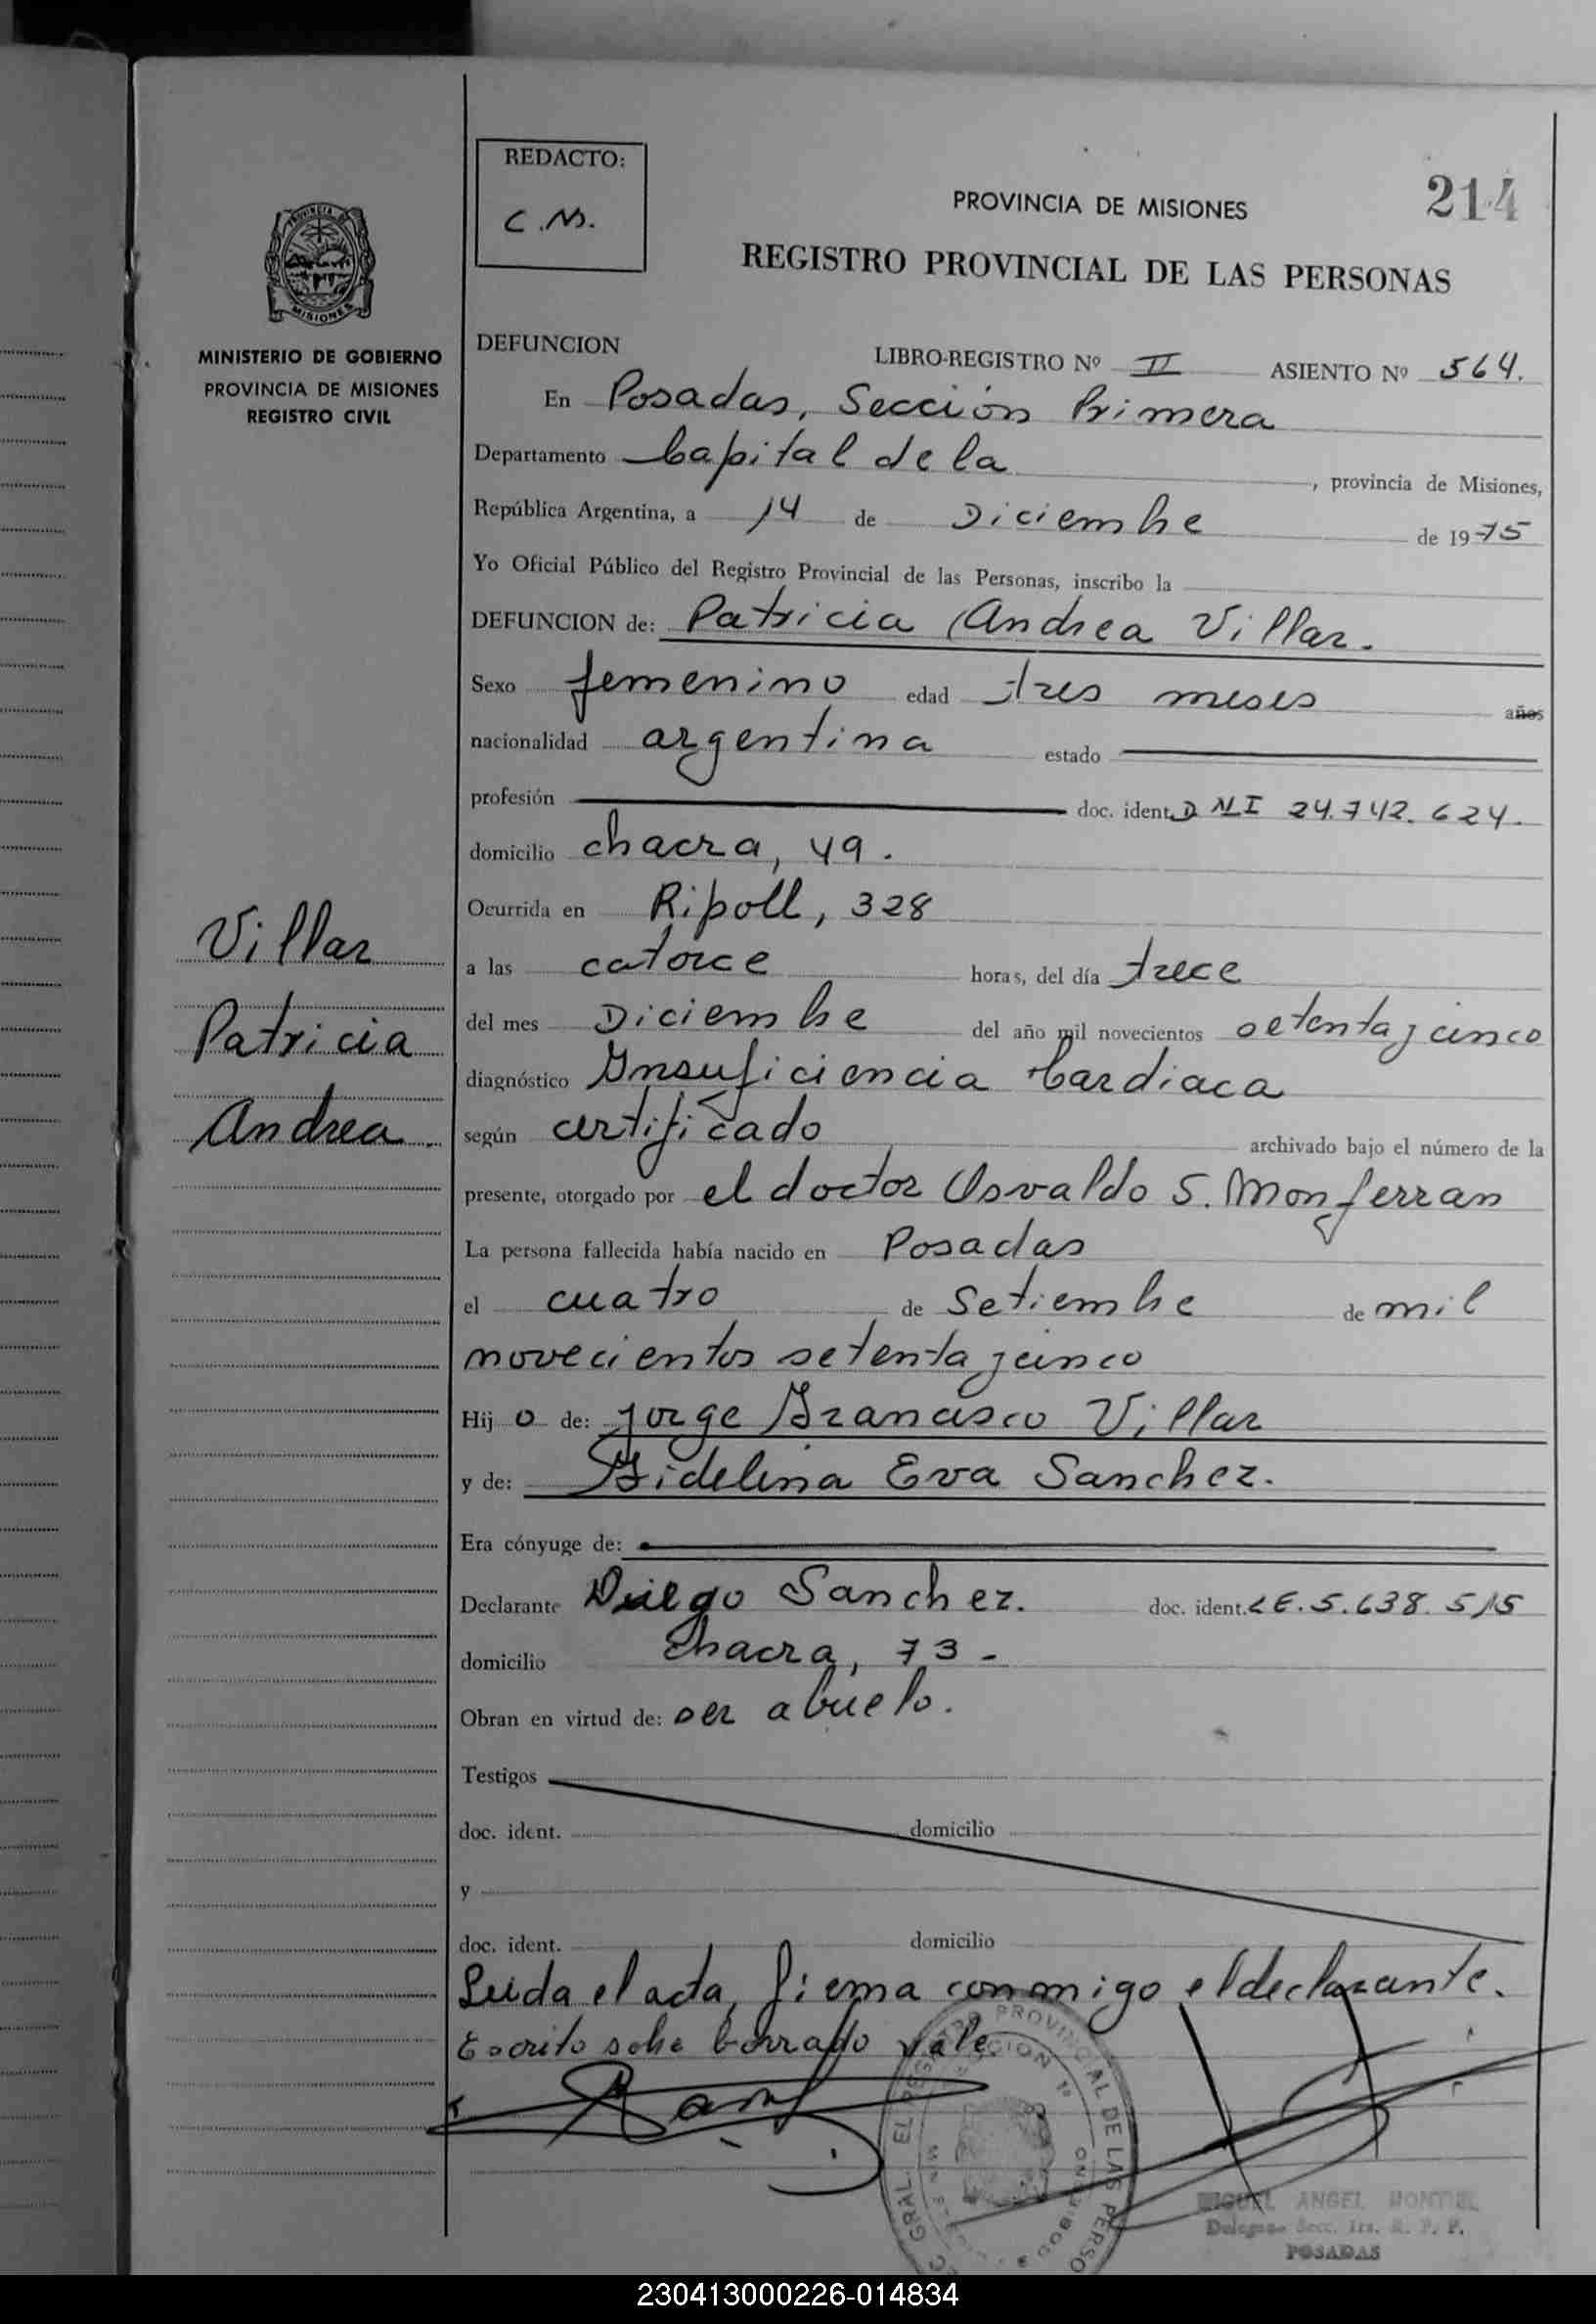 REDACTO:
C.M.
214
PROVINCIA DE MISIONES
REGISTRO PROVINCIAL DE LAS PERSONAS
PROVINCIA DE
MISIONES
MINISTERIO DE GOBIERNO
PROVINCIA DE MISIONES
REGISTRO CIVIL
Villar
Patricia
Andrea.
DEFUNCION LIBRO-REGISTRO Nº II ASIENTO Nº 564.
En Posadas, Sección Primera
Departamento Capital de la, provincia de Misiones,
República Argentina, a 14 de Diciembre de 1975
Yo Oficial Público del Registro Provincial de las Personas, inscribo la
DEFUNCION de: Patricia Andrea Villar.
Sexo femenino edad tres meses años
nacionalidad argentina estado
profesión doc. ident. DNI 24.742.624.
domicilio chacra, 49.
Ocurrida en Ripoll, 328
a las catorce horas, del día trece
del mes Diciembre del año mil novecientos setenta y cinco
diagnóstico Insuficiencia Cardiaca
según certificado archivado bajo el número de la
presente, otorgado por el doctor Osvaldo S. Monferran
La persona fallecida había nacido en Posadas
el cuatro de Setiembre de mil
novecientos setenta y cinco
Hij o de: Jorge Francisco Villar
y de: Fidelina Eva Sanchez.
Era cónyuge de:
Declarante Diego Sanchez. doc. ident. LE. 5.638.515
domicilio Chacra, 73-
Obran en virtud de: ser abuelo.
Testigos
doc. ident. domicilio
y
doc. ident. domicilio
Leida el acta, firma conmigo el declarante.
Escrito sobre borrado vale.
MIGUEL ANGEL MONTIEL
Delegado Secc. 1ra. R. P. P.
POSADAS
230413000226-014834